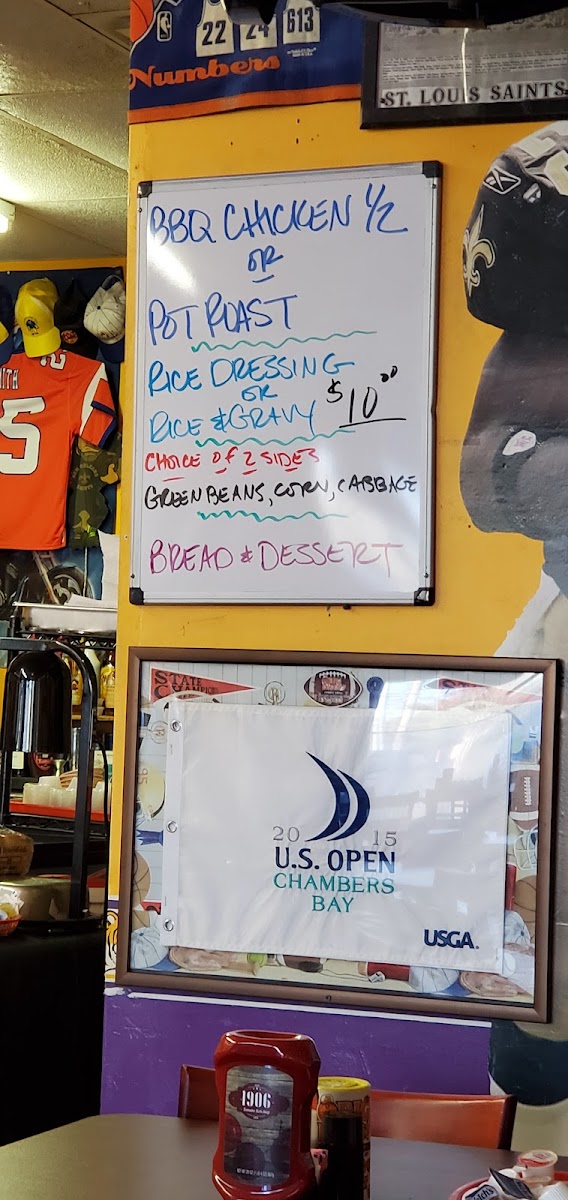 22 24 613
Numbers
ST. LOUIS SAINTS
BBQ CHICKEN 1/2
OR
POT ROAST
RICE DRESSING
OR
RICE & GRAVY $10.00
CHOICE OF 2 SIDES
GREEN BEANS, CORN, CABBAGE
BREAD & DESSERT
5
STATE
20 15
U.S. OPEN
CHAMBERS
BAY
USGA
1906